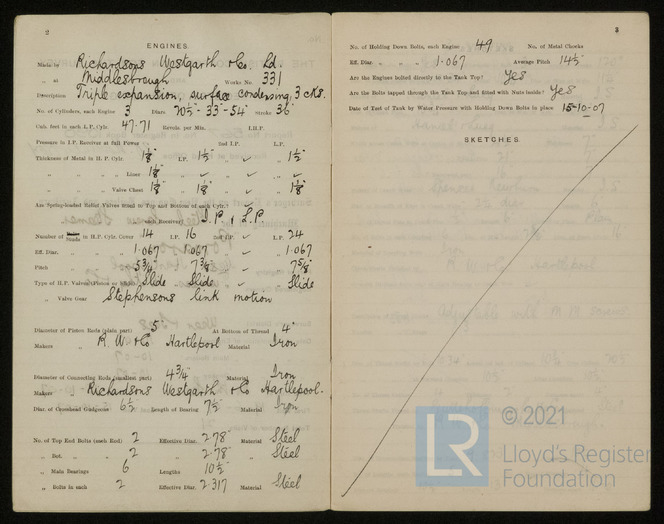 2
ENGINES.
Made by Richardsons Westgarth & Co. Ld.
" at Middlesbrough Works No. 331
Description Triple expansion, surface condensing, 3 cks.
No. of Cylinders, each Engine 3 Diars. 20½ - 33 - 54 Stroke 36
Cub. feet in each L.P. Cylr. 47.71 Revols. per Min. I.H.P.
Pressure in I.P. Receiver at full Power 2nd I.P. L.P.
Thickness of Metal in H.P. Cylr. I.P. 1½ " 1½
" " Liner
" " Valve Chest
Are Spring-loaded Relief Valves fitted to Top and Bottom of each Cylr.?
" " each Receiver? I.P. & L.P.
Number of Studs in H.P. Cylr. Cover 14 I.P. 16 2nd I.P. L.P. 24
Eff. Diar. " " 1.067 " 1.067 " " 1.067
Pitch " " 5¾ 7⅜ 7⅝
Type of H.P. Valves (Piston or Slide) Slide Slide Slide
" Valve Gear Stephensons link motion
Diameter of Piston Rods (plain part) 5 At Bottom of Thread 4
Makers " R. W. & Co Hartlepool Material Iron
Diameter of Connecting Rods (smallest part) 4¾ Material Iron
Makers " Richardsons Westgarth & Co Hartlepool.
Diar. of Crosshead Gudgeons 6½ Length of Bearing 7½ Material Iron
No. of Top End Bolts (each Rod) 2 Effective Diar. 2.78 Material Steel
" Bot. " " 2 " 2.78 " Steel
" Main Bearings 6 Lengths 10½
" Bolts in each 2 Effective Diar. 2.317 Material Steel
3
No. of Holding Down Bolts, each Engine 49 No. of Metal Chocks
Eff. Diar. " " 1.067 Average Pitch 14½
Are the Engines bolted directly to the Tank Top? Yes
Are the Bolts tapped through the Tank Top and fitted with Nuts inside? Yes
Date of Test of Tank by Water Pressure with Holding Down Bolts in place 15-10-07
SKETCHES.
© 2021
LR
Lloyd's Register
Foundation